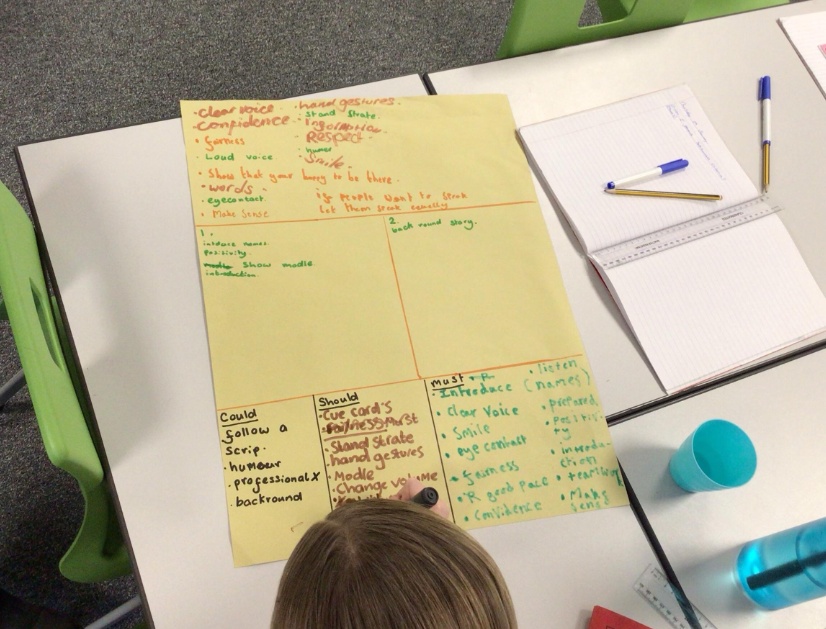 · clear voice
· confidence
· fairness
· Loud voice
· Show that your happy to be there.
· words.
· eyecontact.
· Make Sense
· hand gestures.
· Stand Strate.
· Information.
Respect.
· humer
Smile.
if people want to Speak
let them speak equally
1.
intoduce names.
Positivity.
Show modle
introduction.
2.
back round story.
Could
follow a
Scrip.
· humour
· professional X
· backround
Should
· Cue card's
fairness Must
· Stand Strate
· hand gestures
· Modle
· Change volume
must
· Introduce (names)
· Clear Voice
· Smile
· eye contact
· fairness
· R good Pace
· Confidence
· listen
· prepared
· Positivi-
ty
· introdu-
ction
· teamwork
· Make
Sense